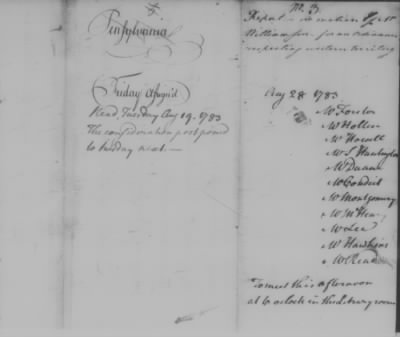 Pensylvania
Friday August
Read, Tuesday Aug 19. 1783
The consideration postponed
to tuesday next.—
No. 3
Report - on motion of Mr
Williamson for an ordinance
respecting western territory
Aug 28 1783
Mr Foster
Mr Holten
Mr Howell
Mr S Huntington
Mr Duane
Mr Condict
Mr Montgomery
Mr McHenry
Mr Lee
Mr Hawkins
Mr Read
To meet this afternoon
at 6 o clock in the Library room